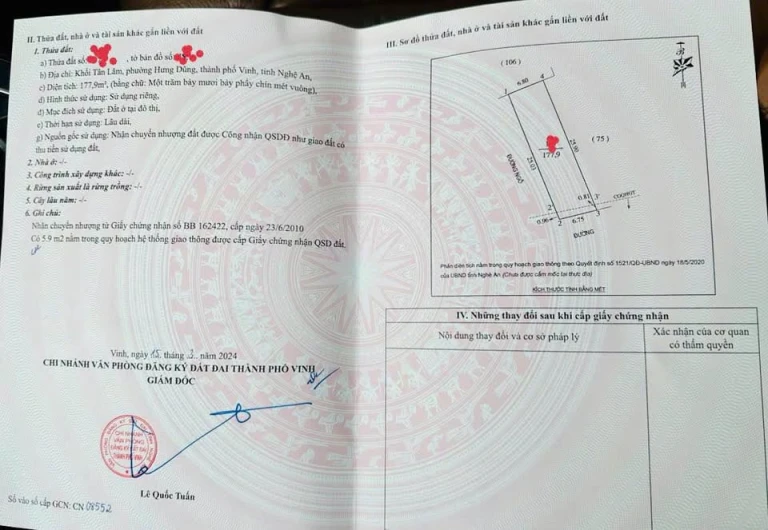 II. Thửa đất, nhà ở và tài sản khác gắn liền với đất
1. Thửa đất:
a) Thửa đất số , tờ bản đồ số
b) Địa chỉ: Khối Tân Lâm, phường Hưng Dũng, thành phố Vinh, tỉnh Nghệ An,
c) Diện tích: 177,9m², (bằng chữ: Một trăm bảy mươi bảy phẩy chín mét vuông),
d) Hình thức sử dụng: Sử dụng riêng,
đ) Mục đích sử dụng: Đất ở tại đô thị,
e) Thời hạn sử dụng: Lâu dài,
g) Nguồn gốc sử dụng: Nhận chuyển nhượng đất được Công nhận QSDĐ như giao đất có
thu tiền sử dụng đất,
2. Nhà ở: -/-
3. Công trình xây dựng khác: -/-
4. Rừng sản xuất là rừng trồng: -/-
5. Cây lâu năm: -/-
6. Ghi chú:
Nhận chuyển nhượng từ Giấy chứng nhận số BB 162422, cấp ngày 23/6/2010
Có 5.9 m2 nằm trong quy hoạch hệ thống giao thông được cấp Giấy chứng nhận QSD đất.
Vinh, ngày 15 tháng 3 năm 2024
CHI NHÁNH VĂN PHÒNG ĐĂNG KÝ ĐẤT ĐAI THÀNH PHỐ VINH
GIÁM ĐỐC
CHI NHÁNH
VĂN PHÒNG
ĐĂNG KÝ ĐẤT ĐAI
THÀNH PHỐ VINH
Lê Quốc Tuấn
Số vào sổ cấp GCN: CN 08552
III. Sơ đồ thửa đất, nhà ở và tài sản khác gắn liền với đất
(106)
6.80
1
4
(75)
177,9
25.03
24.90
ĐƯỜNG NGÕ
0.81
3'
2'
0.96
2
6.75
3
ĐƯỜNG
Phần diện tích nằm trong quy hoạch giao thông theo Quyết định số 1521/QĐ-UBND ngày 18/5/2020
của UBND tỉnh Nghệ An (Chưa được cắm mốc tại thực địa)
KÍCH THƯỚC TÍNH BẰNG MÉT
IV. Những thay đổi sau khi cấp giấy chứng nhận
Nội dung thay đổi và cơ sở pháp lý
Xác nhận của cơ quan
có thẩm quyền